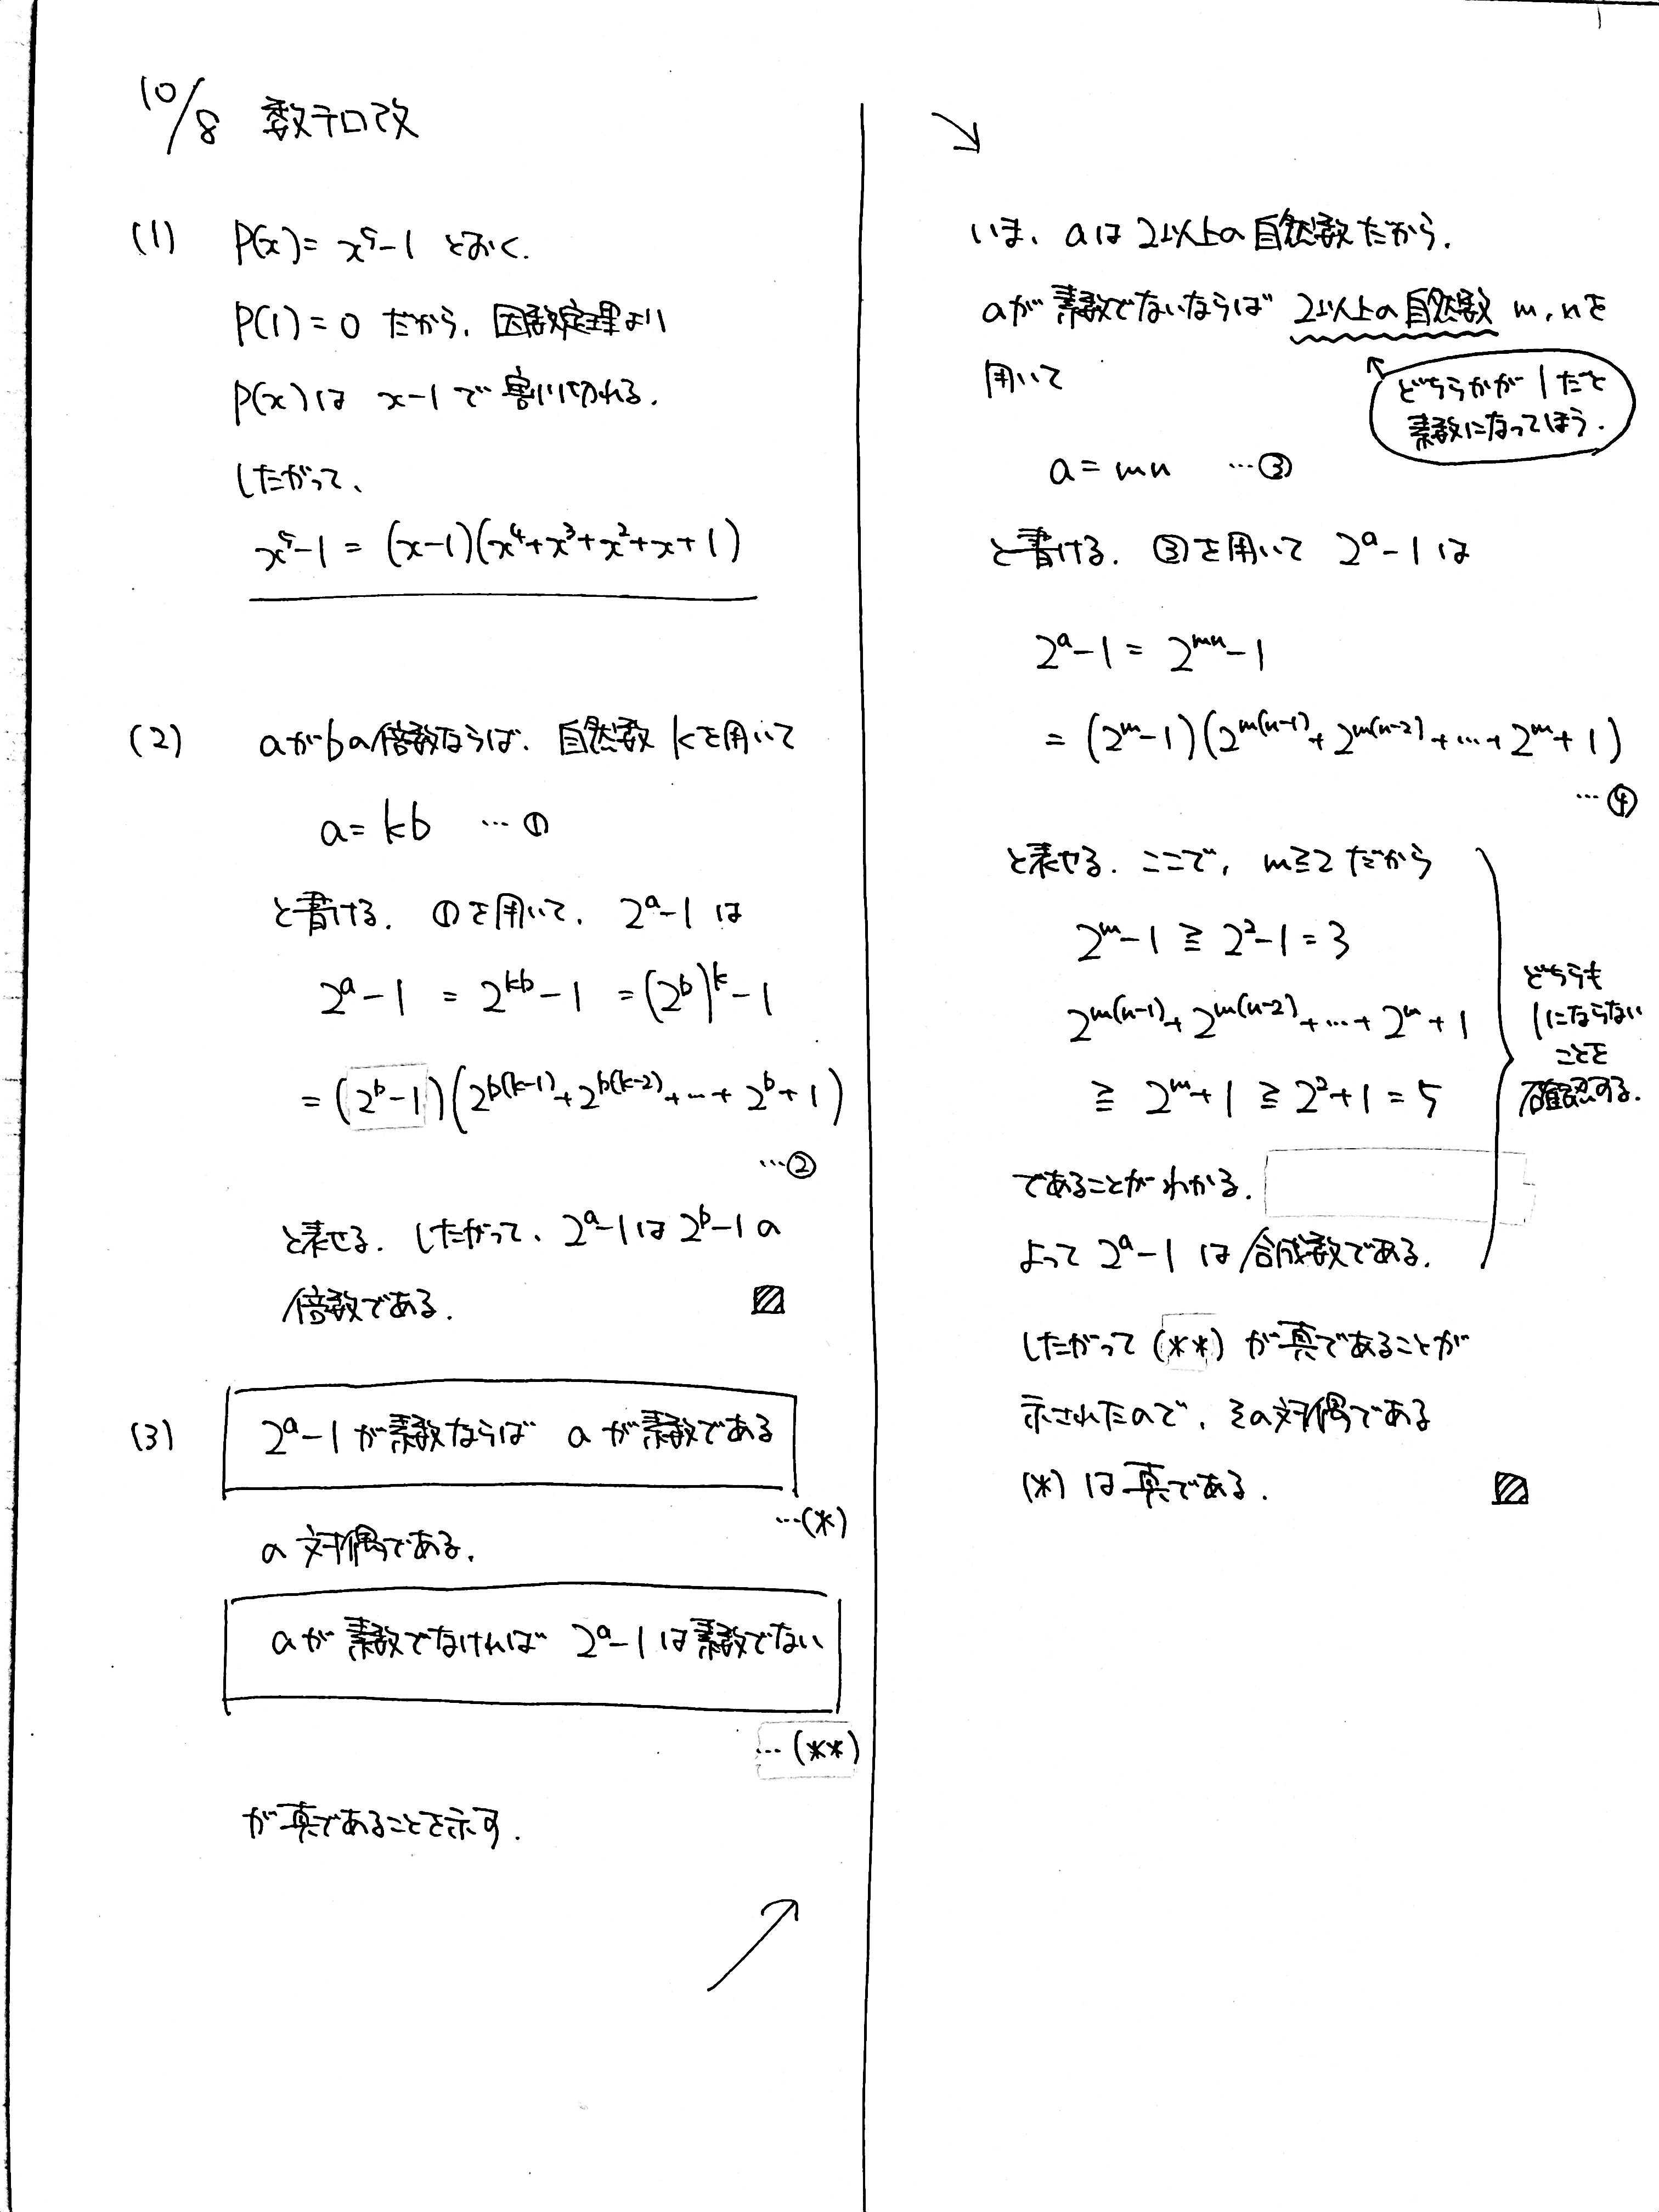 10/8 数テロ改
(1) P(x) = x⁵-1 とおく.
P(1) = 0 だから, 因数定理より
P(x) は x-1 で割り切れる.
したがって、
x⁵-1 = (x-1)(x⁴+x³+x²+x+1)
(2) aがbの倍数ならば, 自然数 k を用いて
a = kb … ①
と書ける. ①を用いて, 2ᵃ-1 は
2ᵃ-1 = 2ᵏᵇ-1 = (2ᵇ)ᵏ-1
= (2ᵇ-1)(2^{b(k-1)}+2^{b(k-2)}+…+2ᵇ+1)
…②
と表せる. したがって、2ᵃ-1は2ᵇ-1の
倍数である.
(3) 2ᵃ-1が素数ならば aが素数である
…(*)
の対偶である,
aが素数でなければ 2ᵃ-1は素数でない
…(**)
が真であることを示す.
いま、aは2以上の自然数だから,
aが素数でないならば 2以上の自然数 m, nを
用いて
どちらかが1だと
素数になってしまう.
a = mn …③
と書ける. ③を用いて 2ᵃ-1は
2ᵃ-1 = 2ᵐⁿ-1
= (2ᵐ-1)(2^{m(n-1)}+2^{m(n-2)}+…+2ᵐ+1)
…④
と表せる. ここで, m≧2 だから
2ᵐ-1 ≧ 2²-1 = 3
2^{m(n-1)}+2^{m(n-2)}+…+2ᵐ+1
≧ 2ᵐ+1 ≧ 2²+1 = 5
であることがわかる.
よって 2ᵃ-1 は合成数である.
どちらも
1にならない
ことを
確認する.
したがって (**) が真であることが
示されたので, その対偶である
(*) は真である.